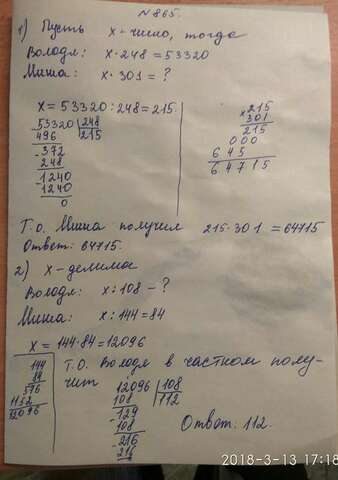 №865.
1) Пусть x - число, тогда
Володя: x·248=53320
Миша: x·301=?
x=53320:248=215
53320 248
496 215
-372
248
-1240
1240
0
215
×301
215
000
645
64715
Т.О. Миша получил 215·301=64715
Ответ: 64715.
2) x - делимое
Володя: x:108-?
Миша: x:144=84
x=144·84=12096
144
84
576
1152
12096
Т.О. Володя в частном полу-
чит
12096 108
108 112
-129
108
-216
216
Ответ: 112.
2018-3-13 17:18